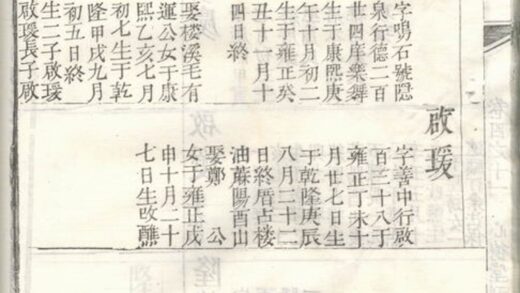 字鳴石號隱
泉行德二百
廿四庠樂舞
生于康熙庚
午十月初二
生于雍正癸
丑十一月十
四日終
娶楼溪毛有
運公女于康
熙乙亥七月
初七生于乾
隆甲戌九月
初五日終
生二子啟瑗
啟瑗長子啟
啟瑗
字善中行啟
百三十八于
雍正丁未十
月廿七日生
于乾隆庚辰
八月二十二
日終厝占楼
油蔴陽酉山
娶鄭 公
女于雍正戊
申十月二十
七日生改醮